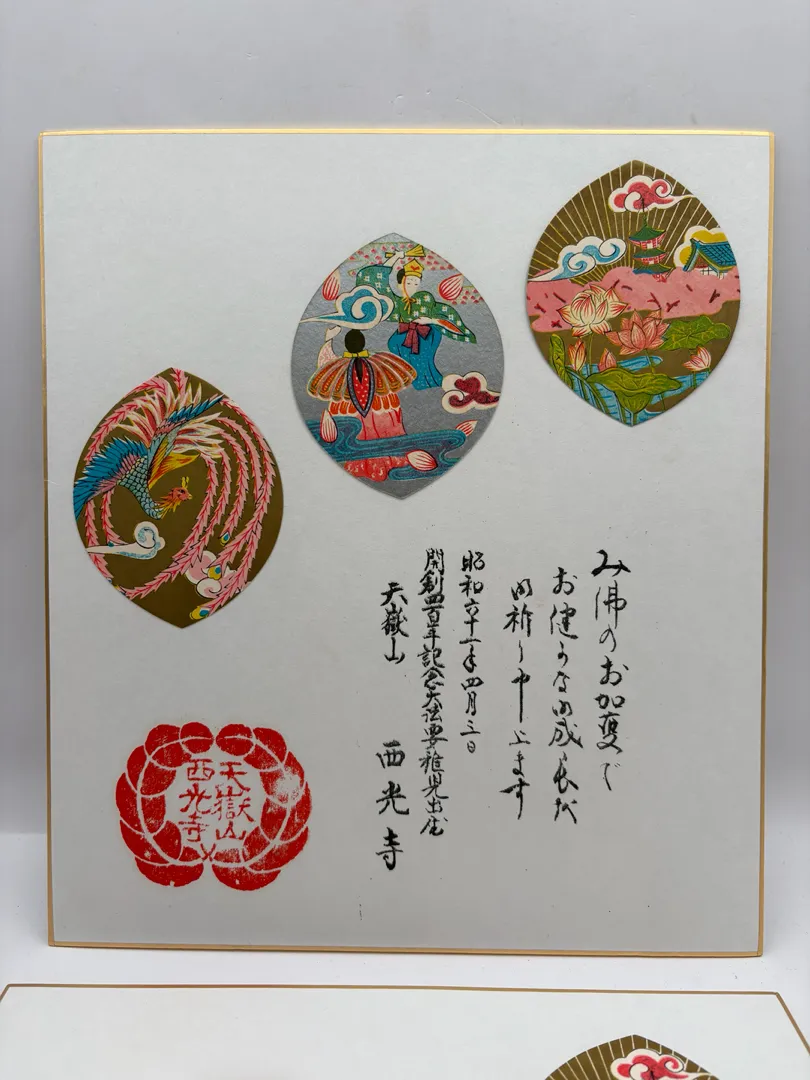 み佛のお加護で
お健やかな御成長を
御祈り申上ます
昭和六十一年四月三日
開創四百年記念大法要稚児出仕
天嶽山　西光寺
天嶽山
西光寺